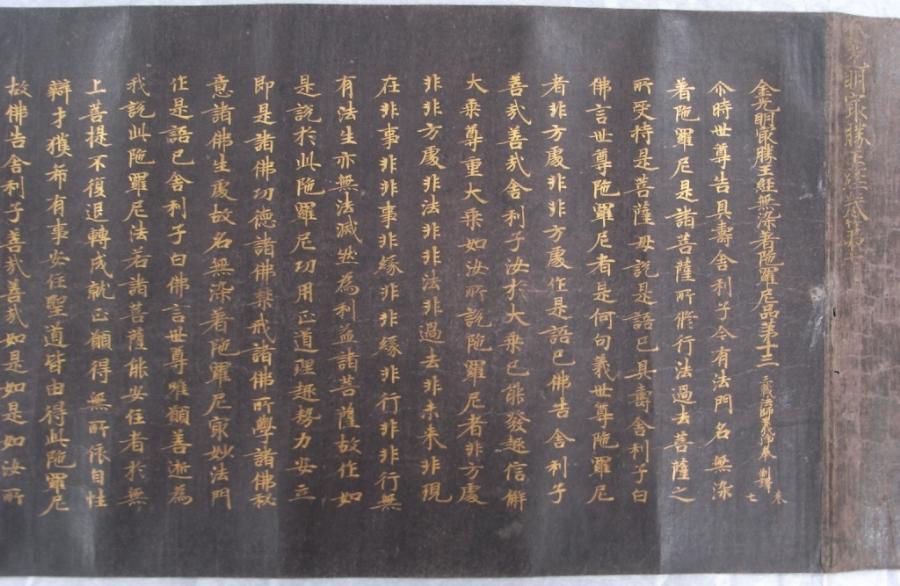 光明㝡勝王經卷第
金光明㝡勝王經無染著陁羅尼品第十三 三藏法師義淨奉 制譯
七
尒時世尊告具壽舍利子今有法門名無染
著陁羅尼是諸菩薩所修行法過去菩薩之
所受持是菩薩母說是語已具壽舍利子白
佛言世尊陁羅尼者是何句義世尊陁羅尼
者非方處非非方處作是語已佛告舍利子
善哉善哉舍利子汝於大乘已能發趣信解
大乘尊重大乘如汝所說陁羅尼者非方處
非非方處非法非非法非過去非未来非現
在非事非非事非緣非非緣非行非非行無
有法生亦無法滅然為利益諸菩薩故作如
是說於此陁羅尼功用正道理趣勢力安立
即是諸佛功德諸佛禁戒諸佛所學諸佛秘
意諸佛生處故名無染著陁羅尼㝡妙法門
作是語已舍利子白佛言世尊唯願善逝為
我說此陁羅尼法若諸菩薩能安住者於無
上菩提不復退轉成就正願得無所依自性
辯才獲希有事安住聖道皆由得此陁羅尼
故佛告舍利子善哉善哉如是如是如汝所